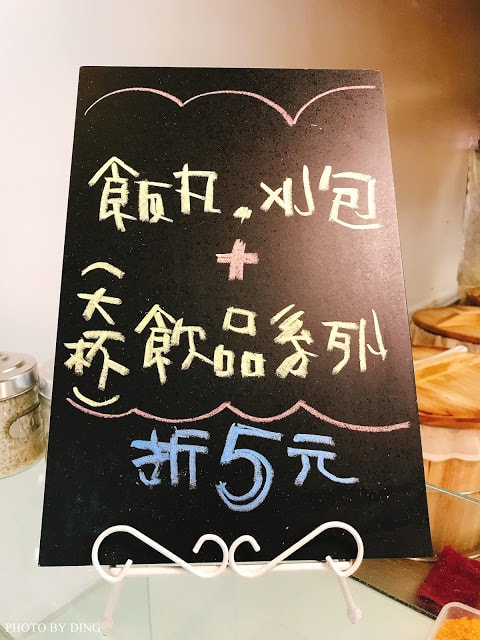 飯丸.刈包
+
(大杯)飲品系列
折5元
PHOTO BY DING